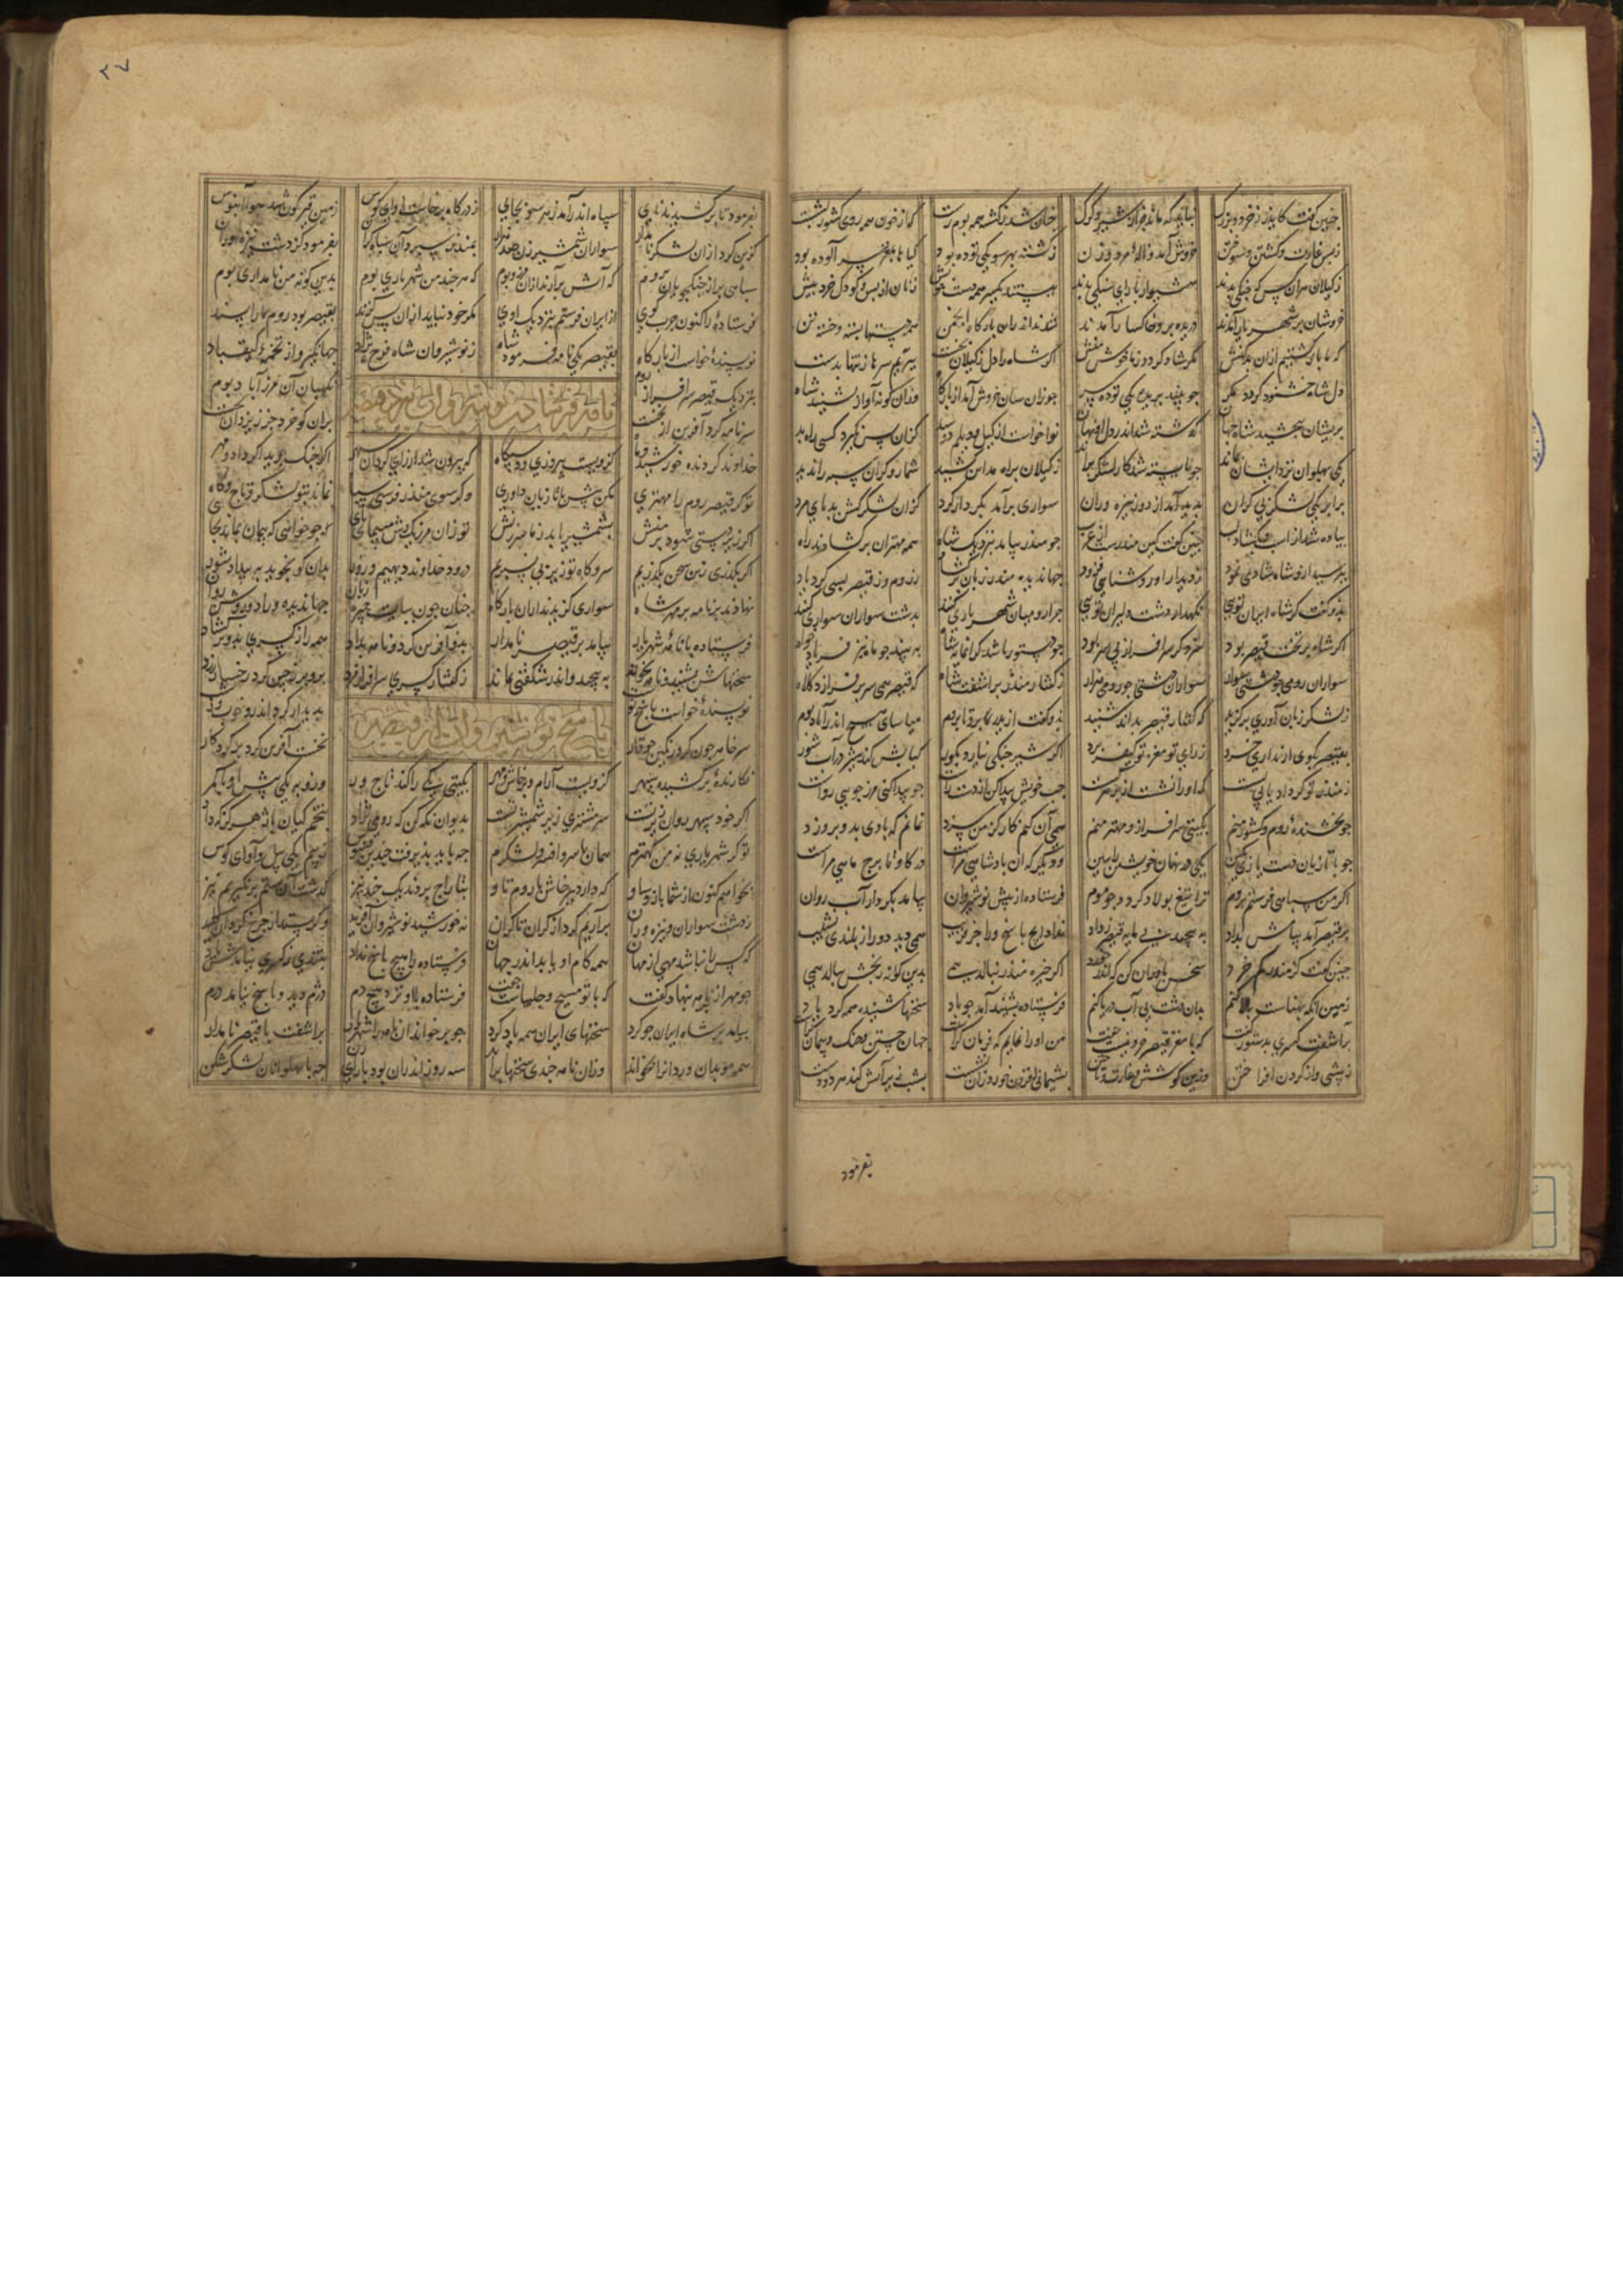 جنین گفت کایدر ز خرد و بزرگ نباید که ماند پی شیر و گرگ جنان شد ز کشته همه بوم رست که از خون همه روی کشور بشست
ز بس غارت و کشتن و سوختن خروش آمد و ناله مرد و زن ز کشته بهر سو یکی توده بود گیاها بمغز سر آلوده بود
ز گیلان هر آن کس که جنکی بدند هشیوار با رای سنکی بدند ببستند یکسر همه دست خویش زنان از پس و کودک خرد پیش
خروشان بر شهریار آمدند دریده بر و خاکسار آمدند شدند اندران بارکاه انجمن همه دستها بسته و خسته تن
که ما بازگشتیم ازان بدکنش مکر شاد کردد ز ما خوش منش اکر شاه را دل ز کیلان بخست ببریم سرها ز تنها بدست
دل شاه خشنود کردد مکر جو بیند بریده یکی توده سر جو زان سان خروش آمد از بارکاه وزان کونه آواز بشنید شاه
بریشان ببخشید شاه جهان کذشته شد اندر دل او نهان نوا خواست از کیل و دیلم دوصد کزان پس نکیرد کسی راه بد
یکی پهلوان نزد ایشان بماند جو بایسته شد کار لشکر براند ز کیلان براه مداین کشید شمار و کران سپه را ندید
براه بر یکی لشکر بی کران بدید آمد از دور نیزه وران سواری برآمد بکردار کرد کزان لشکر کشن بد پای مرد
پیاده شد از اسب و بکشاد لب جنین گفت کین منذرست از عرب جو منذر بیامد بنزدیک شاه همه مهتران برکشادند راه
بپرسید ازو شاه شادی نمود ز دیدار او روشنایی فزود جهاندیده منذر زبان برکشاد ز روم و ز قیصر بسی کرد یاد
بدو کفت کر شاه ایران تویی نکهدار دشت دلیران تویی جرا رومیان شهریاری کنند بدشت سواران سواری کنند
اکر شاه بر تخت قیصر بود سزد کر سرافراز بی سر بود جو دستور باشد کرانمایه شاه نبیند جو ما نیز فریادخواه
سواران رومی جو دشتی سوار سواران دشتی جو رومی هزار ز کفتار منذر برآشفت شاه که قیصر همی سر برفرازد کلاه
ز لشکر زبان آوری برکزید که کفتار قیصر بداند شنید بدو کفت از ایدر برو تا بروم میاسای هیچ اندر آباد بوم
بقیصر بکوی ار نداری خرد ز رای تو مغز تو کیفر برد اکر شیر جنکی نیازد بکور کبابش کند شیر در آب شور
ز منذر تو کر داد یابی بست که او را نشست از بر هر کست جب خویش پیدا کن از دست راست جو پیدا کنی مرز جویی رواست
جو بخشنده روم و کشور منم بکیتی سرافراز و مهتر منم همی آن کنم کار کز من سزد نمانم که بادی بدو بروزد
جو با تازیان دست یازی بکین یکی در نهان خویشتن را ببین ودیکر که آن بادشاهی مراست در کاو تا برج ماهی مراست
اکر من سپاهی فرستم بروم ترا تیغ بولاد کردد جو موم فرستاده از پیش نوشیروان بیامد بکردار آب روان
بر قیصر آمد پیامش بداد به پیچید بی مایه قیصر ز داد نداد ایچ پاسخ ورا جز فریب همی دید دور از بلندی نشیب
جنین کفت کز منذر کم خرد سخن باور آن کن که اندر خورد اکر خیره منذر بنالد همی بدین کونه رنجش ببالد همی
زمین آنکه پهناست بالا کنم بدان دشت بی آب دریا کنم فرستاده بشنید آمد جو باد سخنها شنیده همه کرد یاد
برآشفت کسری بدستور گفت که با مغز قیصر خرد نیست جفت من او را نمایم که فرمان کراست جهان جستن و جنک و پیمان کراست
ز بیشی وز کردن افراختن وزین کوشش و غارت و تاختن پشیمانی افزون خورد زان نشست
بفرمود
٣٧
بفرمود تا برکشیدند نای سپاه اندر آمد ز هر سو بجای ز درکاه برخاست آوای کوس زمین قیرکون شد هوا آبنوس
کزین کرد ازان لشکر نامدار سواران شمشیرزن صد هزار بمنذر سپرد آن سپاه کران بفرمود کز دشت نیزه وران
سپاهی بر از جنکجویان بروم که آتش برآرند ازان مرز و بوم که هر جند من شهریاری بوم بدین کونه من نامداری بوم
فرستاده را کنون جرب کوی از ایران فرستم بنزدیک اوی مکر خود نیاید ازان پس کزند بقیصر بود روم ما را پسند
نویسنده خواست از بارکاه بقیصر یکی نامه فرمود شاه ز نوشیروان شاه فرخ نژاد جهانکیر و از تخمه کیقباد
بنزدیک قیصر سرافراز روم نکهبان آن مرز آباد بوم
نامه فرستادن نوشیروان نزد قیصر
سر نامه کرد آفرین از نخست بران کو خرد جز ز یزدان نجست
خداوند کردنده خورشید و ماه کزویست پیروزی و دستگاه که بیرون شد از رای کردان سپهر اکر جنک جوید اکر داد و مهر
تو کر قیصر روم را مهتری مکن بیش با تازیان داوری وکر سوی منذر فرستی سپاه نماند بتو لشکر و تاج و گاه
اکر زیردستی شود برمنش بشمشیر یابد ز ما سرزنش تو زان مرز یک رش مپیمای پای جو خواهی که پیمان بماند بجا
اکر بکذری زین سخن بکذریم سر و کاه تو زیر پی بسپریم درود خداوند دیهیم و زور بدان کو نجوید به بیداد شور
نهادند بر نامه بر مهر شاه سواری کزیدند ازان بارکاه جنان جون ببایست جیره زبان جهاندیده و راد و روشن روان
فرستاده با نامه شهریار بیامد بر قیصر نامدار برو آفرین کرد و نامه بداد همه راز کسری بدو برکشاد
سخنهاش بشنید و نامه بخواند به پیچید و اندر شکفتی بماند ز کفتار کسری سرافراز مرد برو پر ز جین کرد و رخساره زرد
نویسنده خواست پاسخ نوشت پدیدار کرد اندرو خوب و زشت
پاسخ نوشیروان از قیصر
سر خامه جون کرد رنکین جو قار نخست آفرین کرد بر کردکار
نکارنده برکشیده سپهر کزویست آرام و پرخاش و مهر بکیتی یکی را کند تاج ور وزو بر یکی پیش او با کمر
اکر خود سپهر روان زیر تست سر مشتری زیر شمشیر تست بدیوان نکه کن که رومی نژاد بتخم کیان باژ هرکز نداد
تو کر شهریاری نه من کهترم همان با سر و افسر و لشکرم جه باید پذیرفت جندین فسوس ز بیم پی پیل و آوای کوس
بخواهم کنون از شما باژ و ساو که دارد بپرخاش با روم تاو بتاراج بردند یک جند جیز کذشت آن ستم برنکیریم نیز
ز دشت سواران نیزه وران برآریم کرد از کران تا کران نه خورشید نوشیروان آفرید وکر بستد از جرخ کردان کلید
که کس را نباشد مهی از مهان همه کام او یابد اندر جهان فرستاده را هیچ پاسخ نداد بتندی ز کسری نیامدش یاد
جو مهر از بر نامه بنهاد کفت که با تو مسیح و جلیپاست جفت فرستاده با او نزد هیچ دم دژم دید و پاسخ نیامد درم
بیامد بر شاه ایران جو کرد سخنهای ایران همه یاد کرد جو برخواند آن نامه را شهریار برآشفت با قیصر نامدار
همه موبدان و ردانرا بخواند وزان نامه جندی سخنها براند سه روز اندران بود با رای زن جه با پهلوانان لشکرشکن